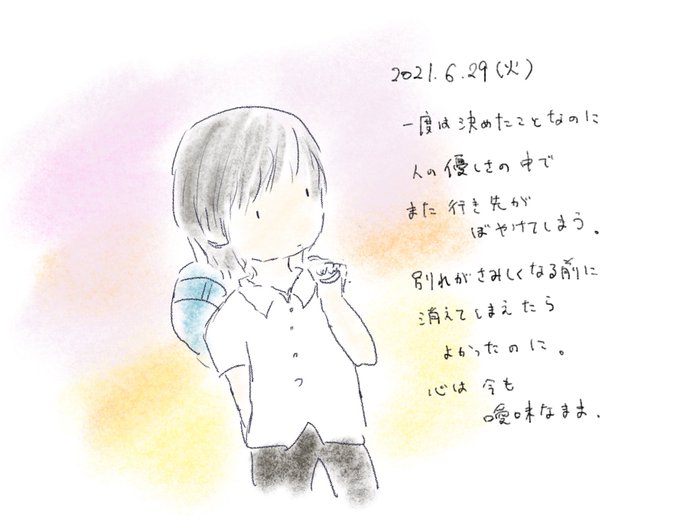 2021.6.29(火)
一度は決めたことなのに
人の優しさの中で
また行き先が
ぼやけてしまう。
別れがさみしくなる前に
消えてしまえたら
よかったのに。
心は今も
曖昧なまま.